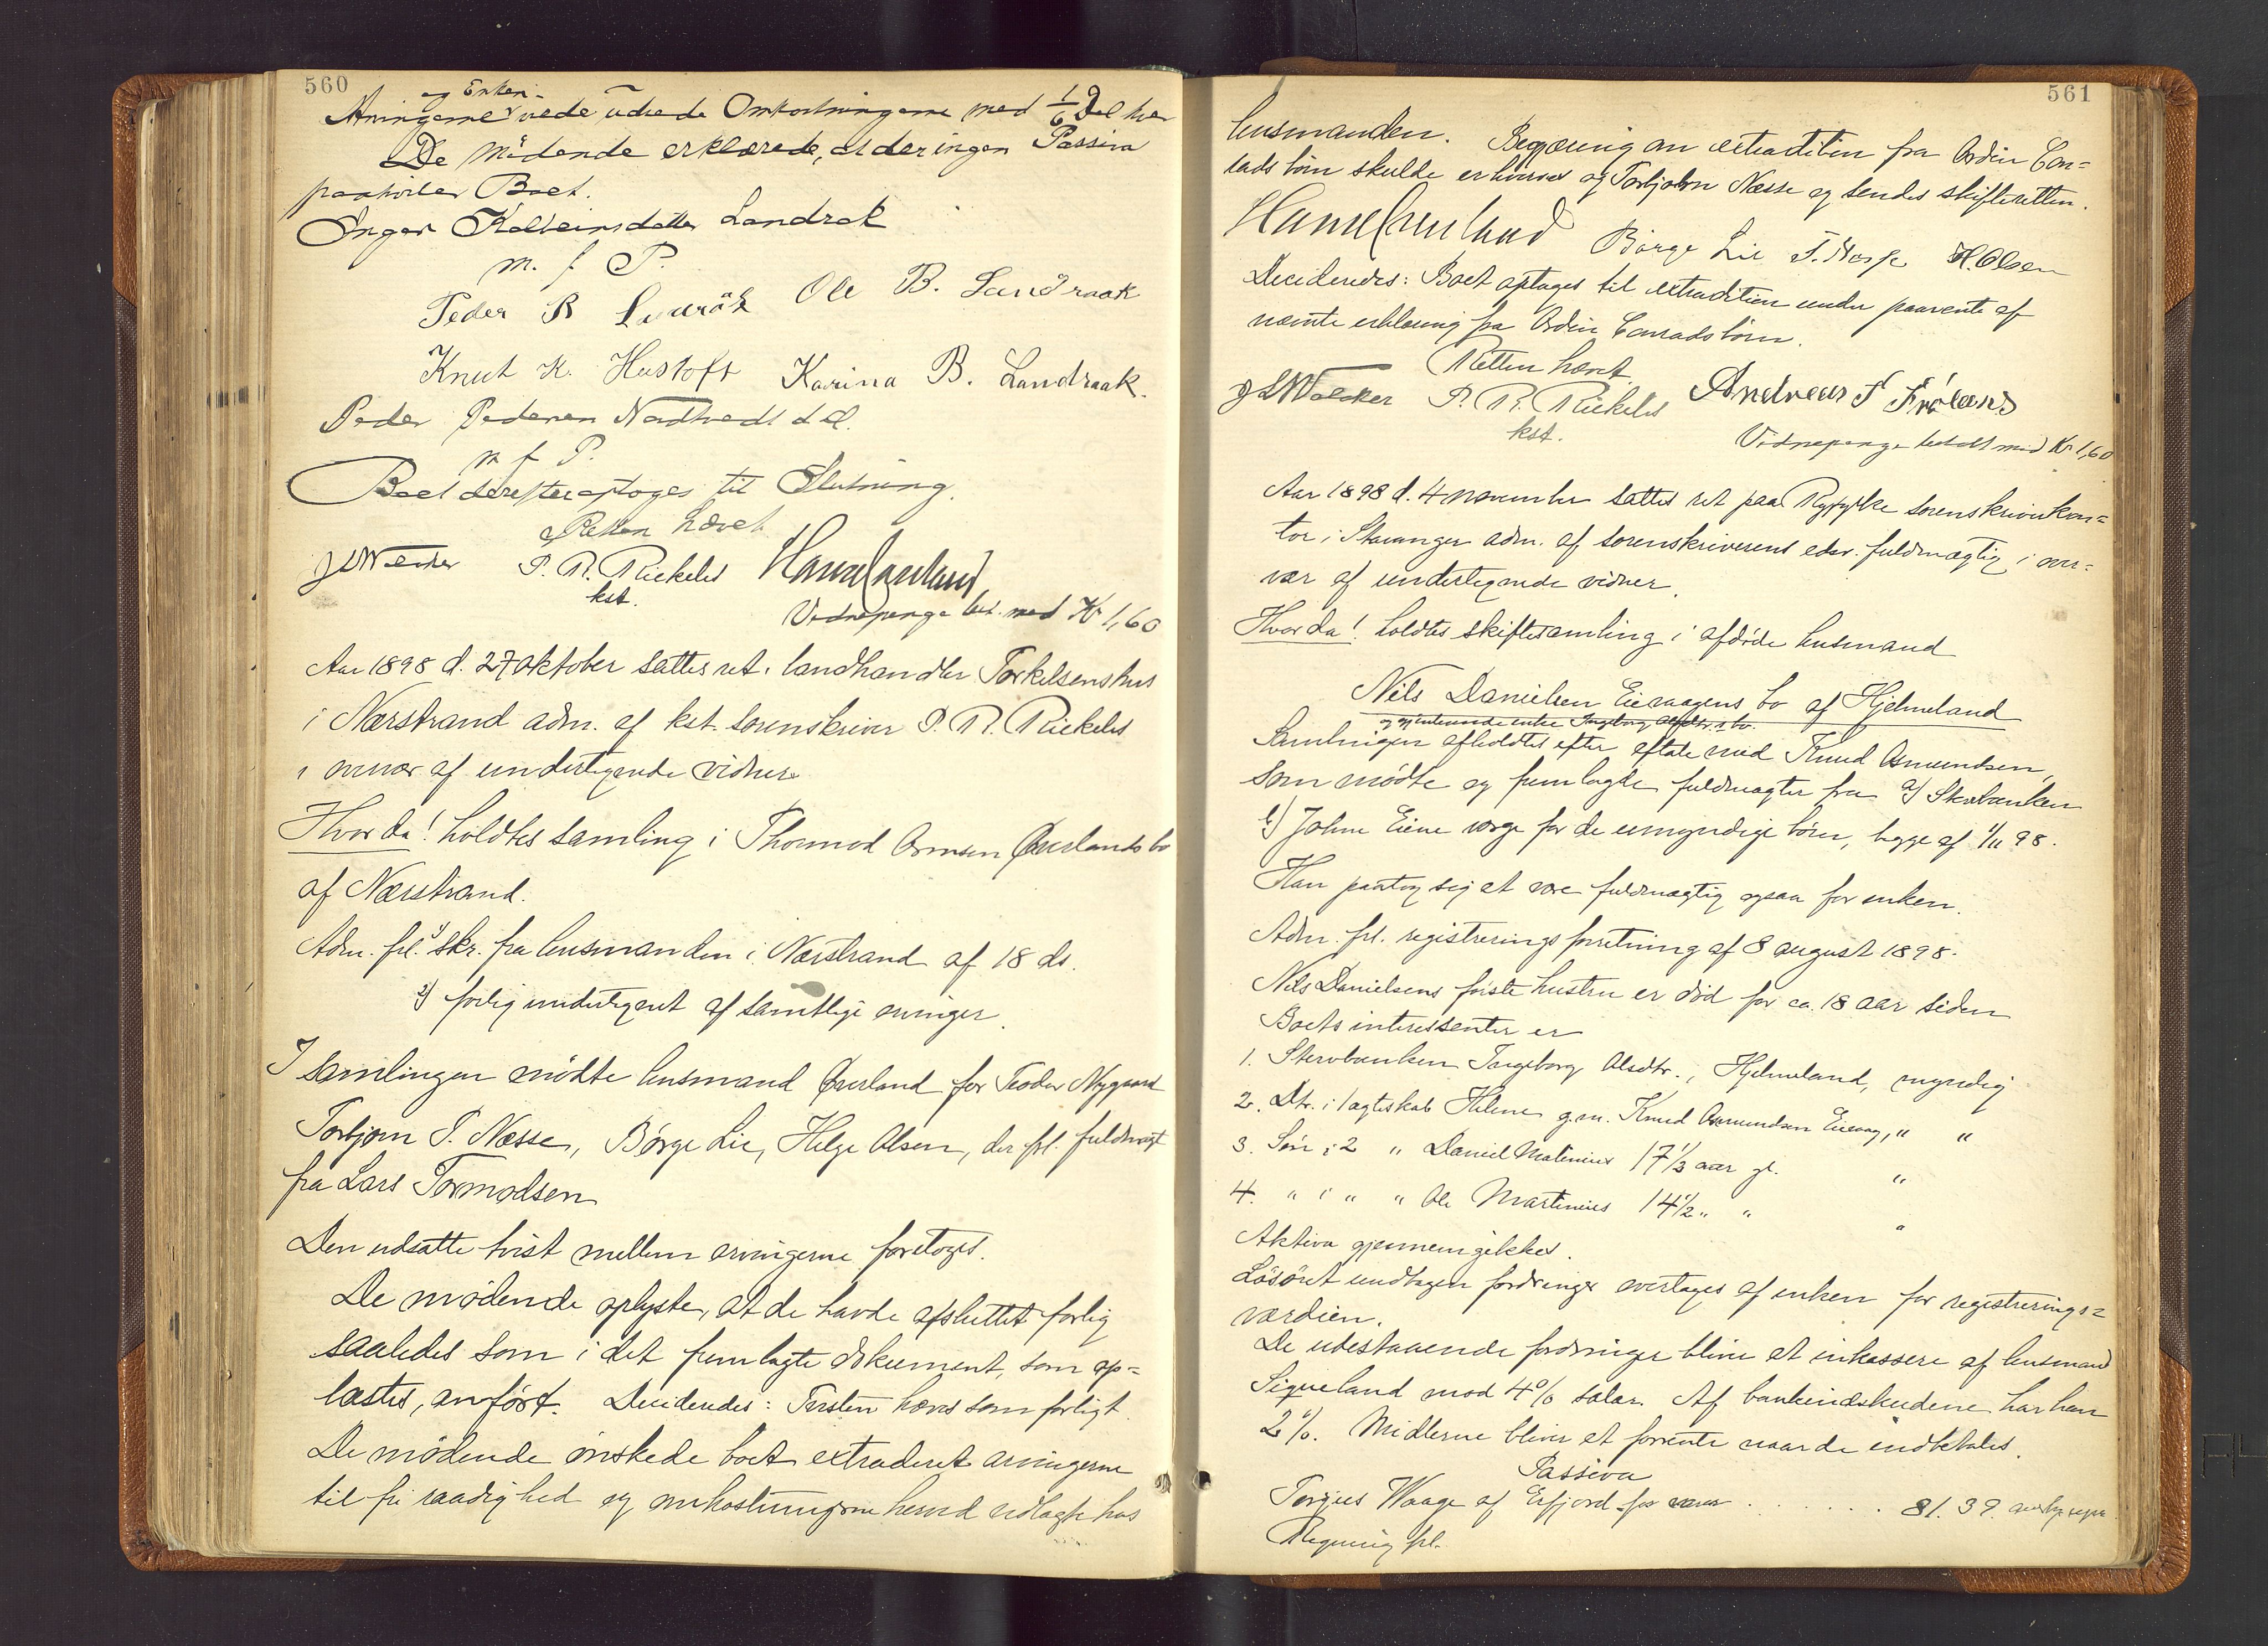 560
og Enken
Arvingerne vede udrede Omkostningerne med 1/6 Del hver
De mödende erklærede, at der ingen Passiva
paahviler Boet.
Inger Kolbeinsdatter Landrak
m. f P.
Peder B Ole B. Landraak
Knut K. Hustoft Karina B. Landraak.
Peder Pedersen
m f P.
Boet derefter optoges til Slutning.
Retten hævet
P. R. Rickeles
kst.
Vidnepenge bet. med Kr 1,60
Aar 1898 d. 27 oktober sattes ret i landhandler Torkelsens hus
i Nærstrand adm. af kst. sorenskriver P. R. Rickeles
i overvær af undertegnede vidner
Hvorda! holdtes samling i Thormod Ormsen Øverlands bo
af Nærstrand.
Adm. frl. 1) skr. fra lensmanden i Nærstrand af 18 ds.
2) forlig undertegnet af samtlige arvinger.
I samlingen mödte lensmand Øverland for Teodor Nygaard
Torbjørn P. Næsse, Børge Lie, Helge Olsen, der frl. fuldmagt
fra Lars Tormodsen
Den udsatte tvist mellem arvingerne foretoges.
De mødende oplyste, at de havde afsluttet forlig
saaledes som i det fremlagte dokument, som op=
læstes, anført. Decideredes: Tvisten hæves som forligt.
De mødende ønskede boet extraderet arvingerne
til fri raadighed og omkostningerne herved udlagte hos
561
lensmanden. Begjæring om extradition fra Ordin Con=
rads børn skulde erhverves af Torbjørn Næsse og sendes skifteretten.
Børge Lie T. Næsse H. Olsen
Decideredes: Boet optages til extradition under paavente af
nævnte erklæring fra Ordin Conrads børn.
Retten hævet.
P. R. Rickeles Andreas
kst.
Vidnepenge betalt med Kr 1,60
Aar 1898 d. 4 november sattes ret paa Ryfylke sorenskriverkon=
tor i Stavanger adm. af sorenskriverens edsv. fuldmægtig i over=
vær af undertegnede vidner.
Hvorda! holdtes skiftesamling i afdøde husmand
Nils Danielsen Eievaagens bo af Hjelmeland
og gjenlevende enke Ingeborg Olsdtr.s bo.
Samlingen afholdtes efter aftale med Knud Osmundsen,
som mødte og fremlagde fuldmagter fra a) Skarbanken
b) Johne Eiene værge for de umyndige børn, begge af 1/11 98.
Han paatog sig at være fuldmægtig ogsaa for enken.
Adm. frl. registreringsforretning af 8 august 1898.
Nils Danielsens første hustru er død for ca. 18 aar siden
Boets interessenter er
1. Stervboenken Ingeborg Olsdtr., Hjelmeland, myndig
2. Dtr. i 1 ægteskab Helene g.m. Knud Osmundsen Eievaag, " "
3. Søn i 2 " Daniel Matinius 17 1/3 aar gl. "
4. " i " " Ole Martinius 14 1/2 " " "
Aktiva gjennemgikkes.
Løsøret undtagen fordringer overtages af enken for registrerings=
værdien.
De udestaaende fordringer bliver at inkassere af lensmand
Sigveland mod 4% salær. Af bankindskudene har han
2%. Midlerne bliver at forrente naar de indbetales.
Passiva
Torgius Waage af Erfjord for varer . . . . . . 81. 39.
Regning frl.